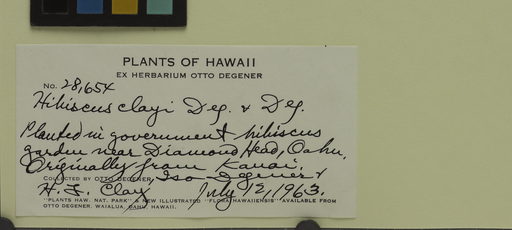 PLANTS OF HAWAII
EX HERBARIUM OTTO DEGENER
No. 28,654
Hibiscus clayi Deg. & Deg.
Planted in government hibiscus
garden near Diamond Head, Oahu.
Originally from Kauai.
COLLECTED BY OTTO DEGENER, Isa Degener &
H. F. Clay July 12, 1963.
"PLANTS HAW. NAT. PARK" & NEW ILLUSTRATED "FLORA HAWAIIENSIS" AVAILABLE FROM
OTTO DEGENER, WAIALUA, OAHU, HAWAII.